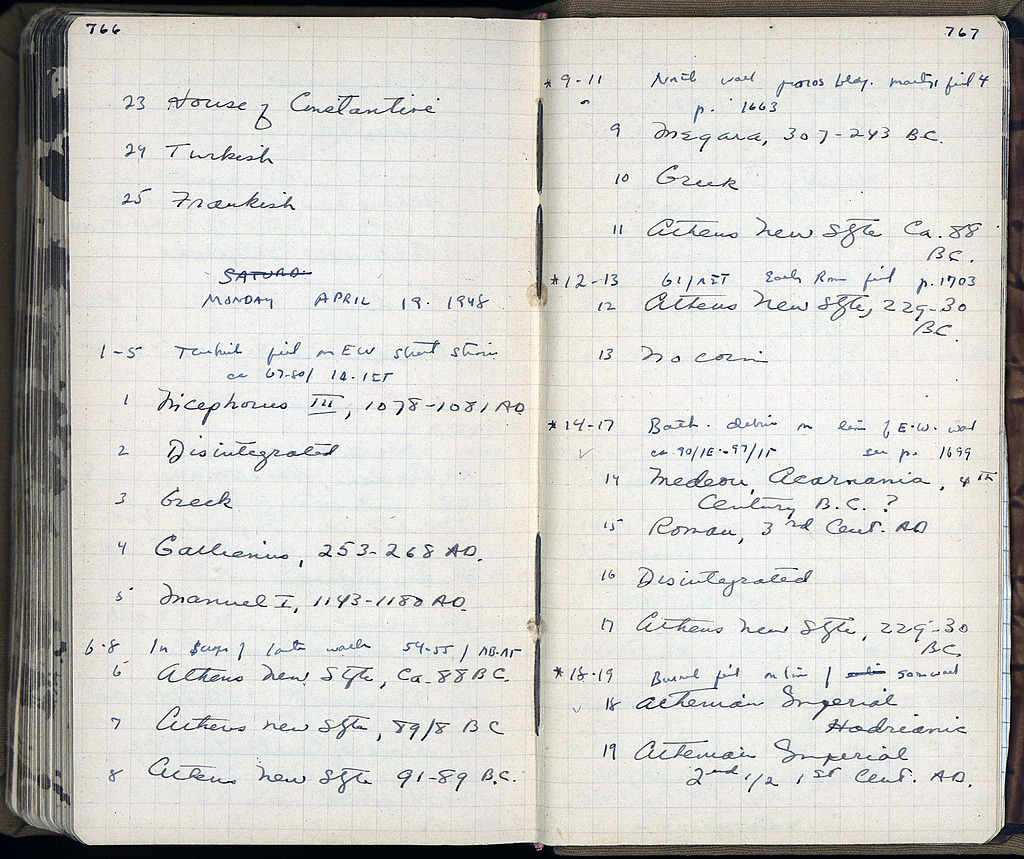 766
23 House of Constantine
24 Turkish
25 Frankish
SATURD.
MONDAY APRIL 19. 1948
1-5 Turkish fill on EW street
ca 67-80/
1 Nicephorus III, 1078-1081 AD
2 Disintegrated
3 Greek
4 Gallienus, 253-268 AD.
5 Manuel I, 1143-1180 AD.
6-8 In late walls 54-55/
6 Athens New Style, Ca. 88 B.C.
7 Athens New Style, 89/8 BC
8 Athens New Style 91-89 B.C.
767
* 9-11 North wall poros bldg. fill 4
p. 1663
9 Megara, 307-243 B.C.
10 Greek
11 Athens New Style Ca. 88
B.C.
* 12-13 61/ Early Rom fill p. 1703
12 Athens New Style, 229-30
BC.
13 No coin
* 14-17 Bath. debris on line of E.W. wall
ca 90/15-97/15 see p. 1699
14 Medeon, Acarnania, 4th
Century B.C. ?
15 Roman, 3rd Cent. AD
16 Disintegrated
17 Athens New Style, 229-30
BC.
* 18-19 Burnt fill on line
18 Athenian Imperial
Hadrianic
19 Athenian Imperial
2nd 1/2 1st Cent. AD.